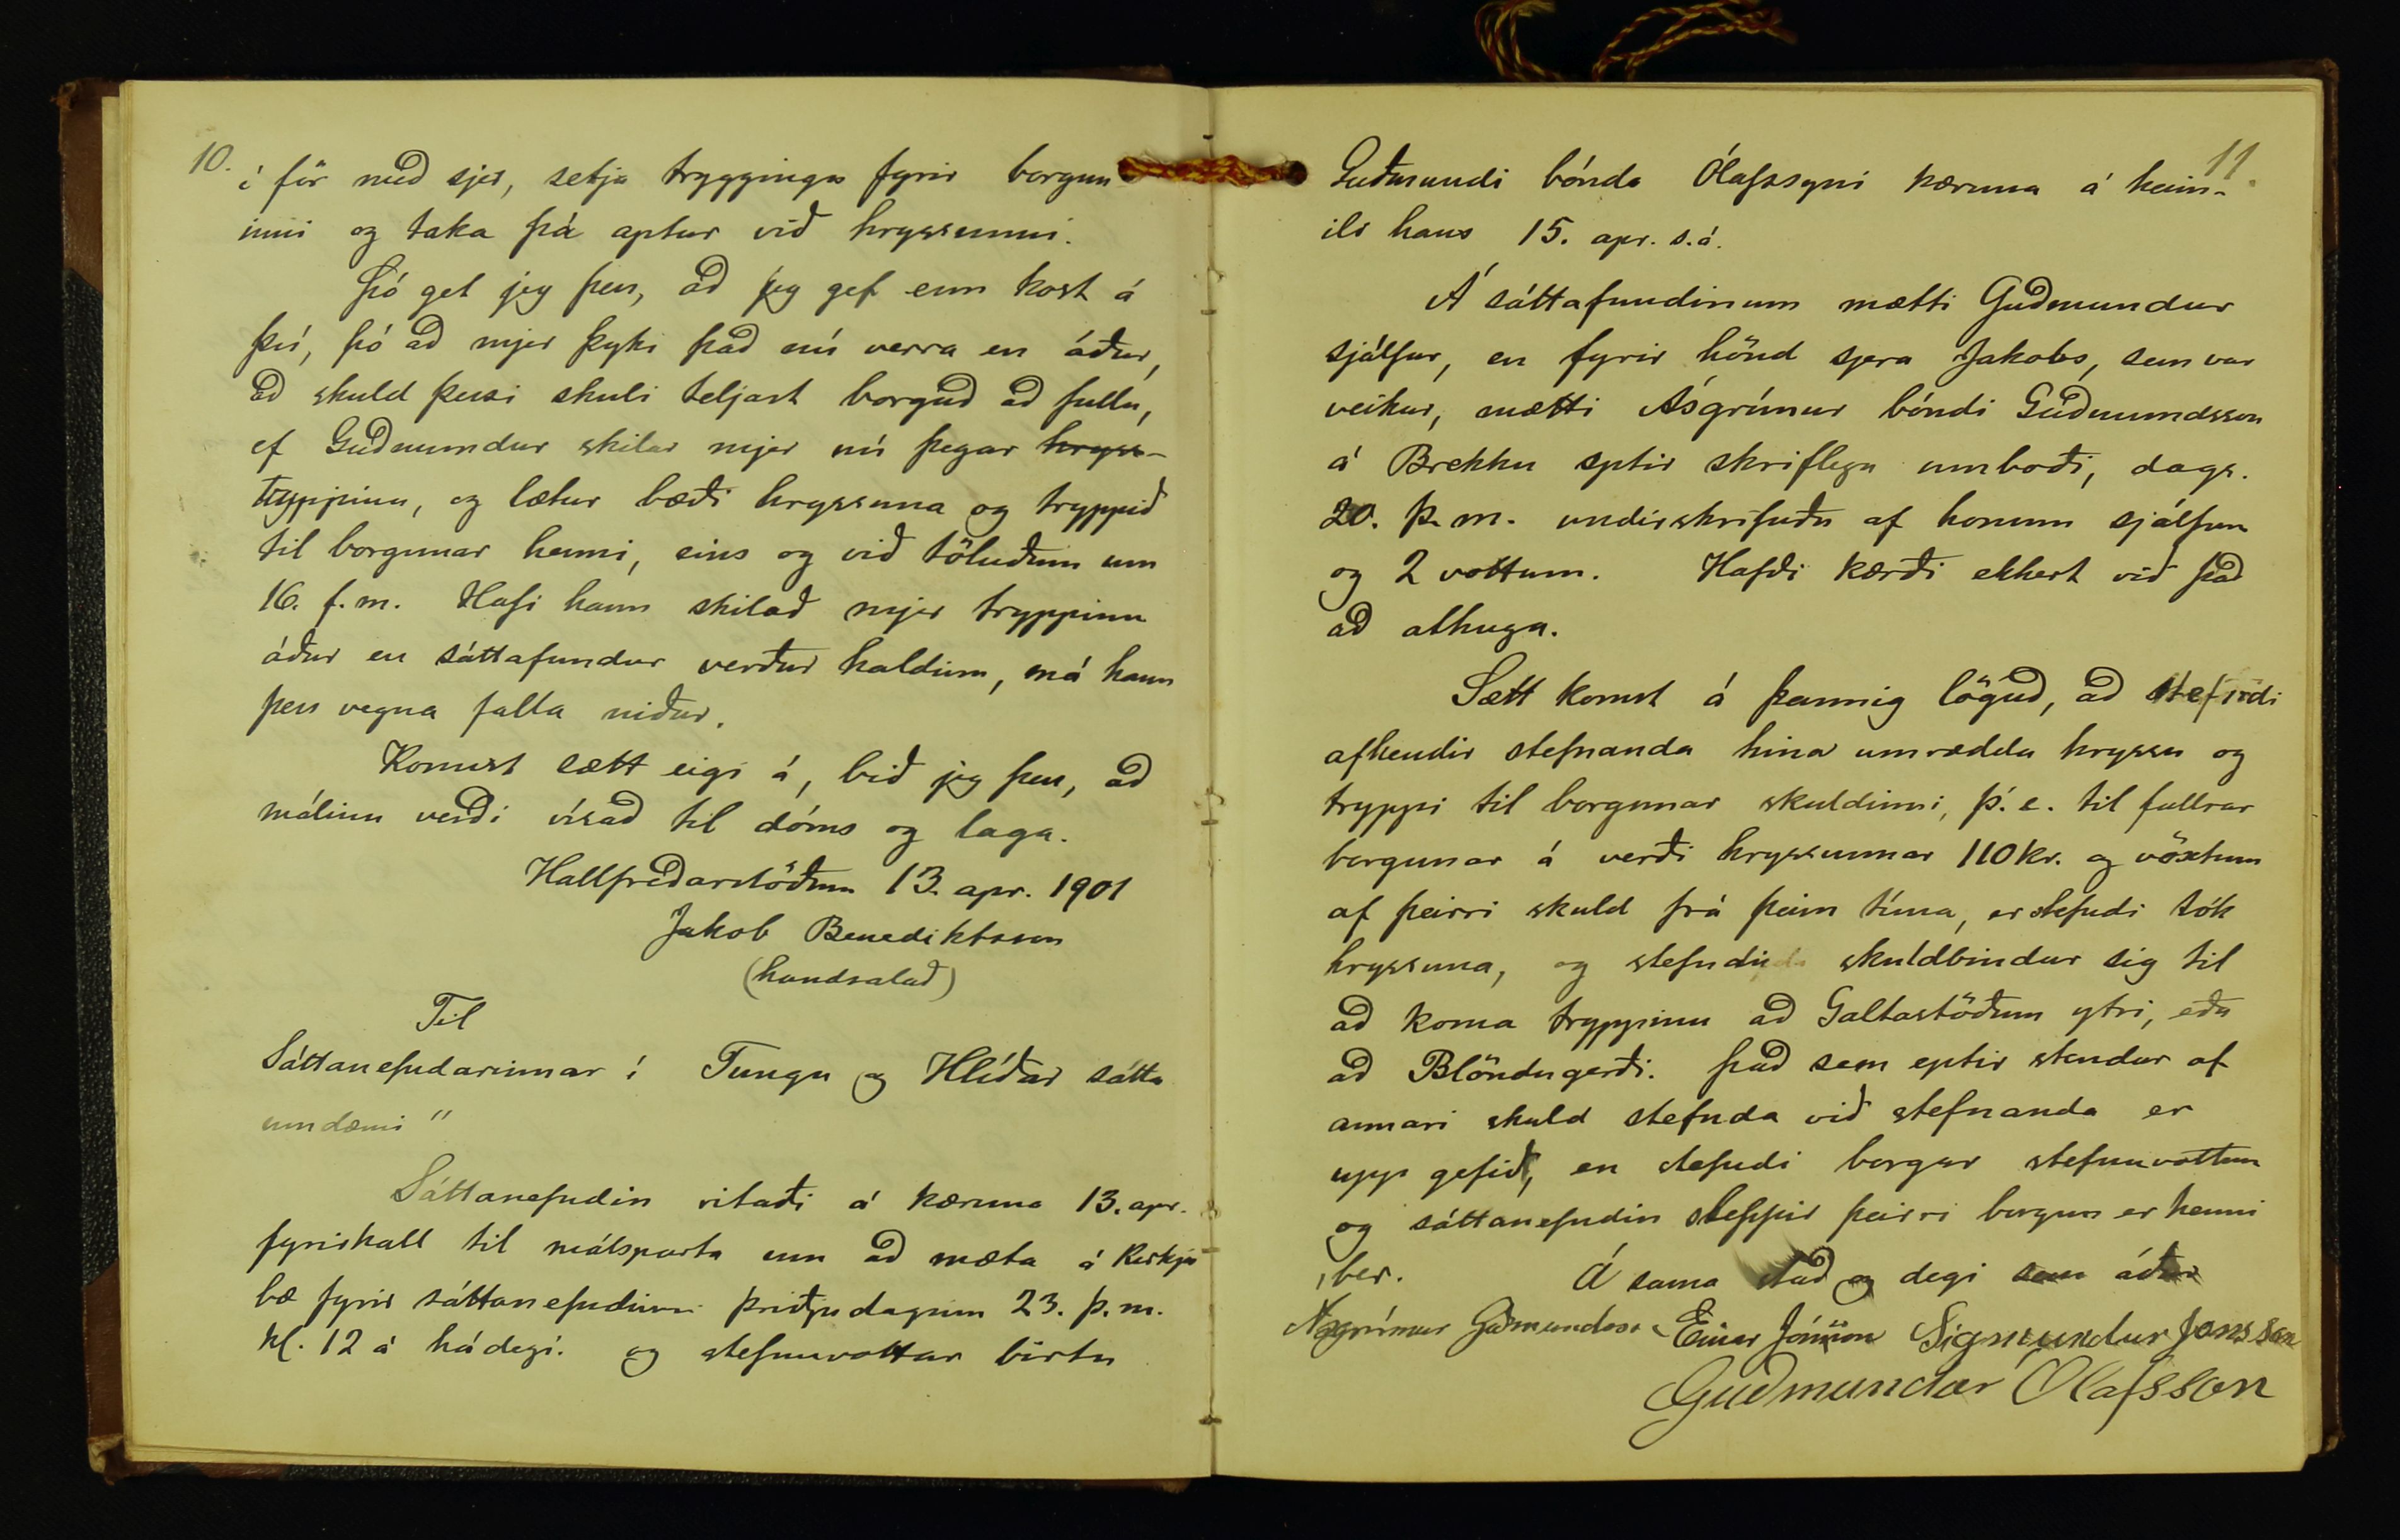 10.
í för með sjer, setja tryggingu fyrir borgun
inni og taka þá aptur við hryssunni.
Þó get jeg þess, að jeg gef enn kost á
því, þó að mjer þyki það nú verra en áður,
að skuld þessi skuli teljast borguð að fullu,
ef Guðmundur skilar mjer nú þegar hryss-
tryppinu, og lætur bæði hryssuna og tryppið
til borgunar henni, eins og við töluðum um
16. f.m. Hafi hann skilað mjer tryppinu
áður en sáttafundur verður haldinn, má hann
þess vegna falla niður.
Komist sætt eigi á, bið jeg þess, að
málinu verði vísað til dóms og laga.
Hallfreðarstöðum 13. apr. 1901
Jakob Benediktsson
(handsalað)
Til
Sáttanefndarinnar í Tungu og Hlíðar sátta
umdæmi"
Sáttanefndin ritaði á kæruna 13. apr.
fyrirkall til málsparta um að mæta á Kirkju
bæ fyrir sáttanefndinni þriðjudaginn 23. þ.m.
kl. 12 á hádegi. og stefnuvottar birtu
11.
Guðmundi bónda Ólafssyni kæruna á heim-
ili hans 15. apr. s.á.
Á sáttafundinum mætti Guðmundur
sjálfur, en fyrir hönd sjera Jakobs, sem var
veikur, mætti Ásgrímur bóndi Guðmundsson
á Brekku eptir skriflegu umboði, dags.
20. þ.m. undirskrifuðu af honum sjálfum
og 2 vottum. Hafði kærði ekkert við það
að athuga.
Sætt komst á þannig löguð, að stefndi
afhendir stefnanda hina umræddu hryssu og
tryppi til borgunar skuldinni, þ.e. til fullrar
borgunar á verði hryssunnar 110 kr. og vöxtum
af þeirri skuld frá þeim tíma, er stefndi tók
hryssuna, og stefndi skuldbindur sig til
að koma tryppinu að Galtastöðum ytri, eða
að Blöndugerði. Það sem eptir stendur af
annari skuld stefnda við stefnanda er
upp gefið, en stefndi borgar stefnuvottum
og sáttanefndin sleppir þeirri borgun er henni
ber. Á sama stað og degi sem áður
Asgrímur Guðmundsson Einar Jónsson Sigmundur Jonsson
Guðmundur Ólafsson